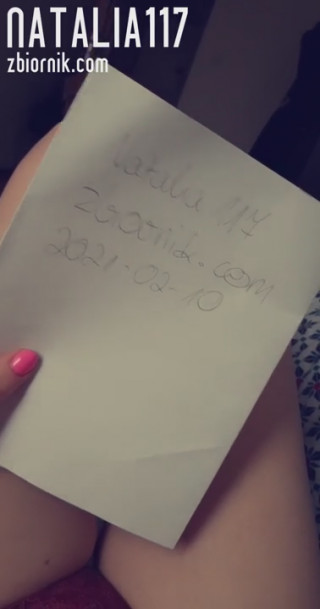 NATALIA117
zbiornik.com
Natalia 117
Zbiornik.com
2021-02-10